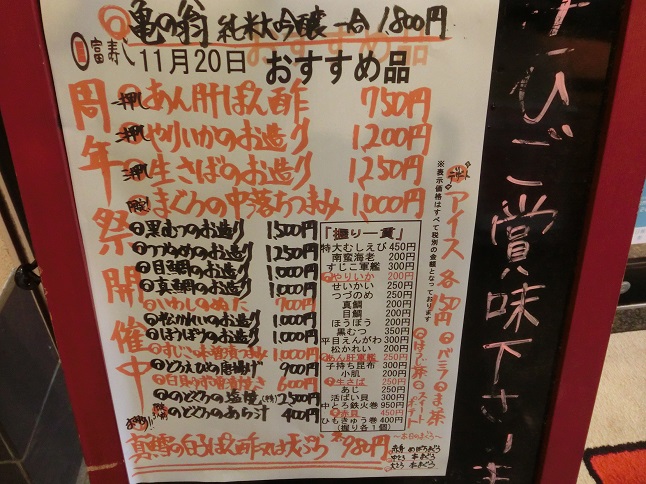 亀の翁 純米大吟醸 一合 1,800円
富寿し
11月20日 おすすめ品
周年祭開催中
一押し あん肝ぽん酢 750円
二押し やりいかのお造り 1,200円
三押し 生さばのお造り 1250円
まぐろの中落ちつまみ 1,000円
黒むつのお造り 1,500円
つづのめのお造り 1250円
目鯛のお造り 1,000円
真鯛のお造り 1,000円
いわしのぬた 700円
松かれいのお造り 1,000円
ほうぼうのお造り 1,000円
すじこ味噌漬つまみ 1,000円
どろえびの唐揚げ 900円
白貝うず潮焼き 600円
のどぐろの塩焼 2,500円
のどぐろのあら汁 400円
真鱈の白子ぽん酢又は天ぷら 各980円
「握り一貫」
特大むしえび 450円
南蛮海老 200円
すじこ軍艦 300円
やりいか 200円
せいかい 250円
つづのめ 250円
真鯛 200円
目鯛 200円
ほうぼう 200円
黒むつ 350円
平目えんがわ 300円
松かれい 200円
あん肝軍艦 250円
子持ち昆布 300円
小肌 200円
生さば 250円
あじ 250円
活ばい貝 300円
中とろ鉄火巻 950円
赤貝 450円
ひもきゅう巻 400円
(握り各1個)
※表示価格はすべて税別の金額となっております
アイス 各150円
バニラ
まっ茶
ほうじ茶
スイートポテト
～本日のまぐろ～
赤身 めばちまぐろ
中とろ 本まぐろ
大とろ 本まぐろ
ぜひご賞味下さいま